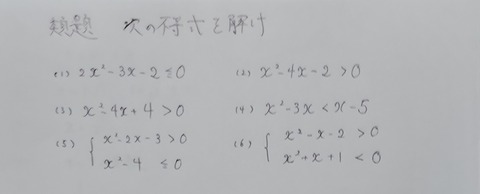 類題 次の不等式を解け
(1) 2x²-3x-2≦0 (2) x²-4x-2>0
(3) x²-4x+4>0 (4) x²-3x<x-5
(5) { x²-2x-3>0 (6) { x²-x-2>0
x²-4 ≦0 x²+x+1<0